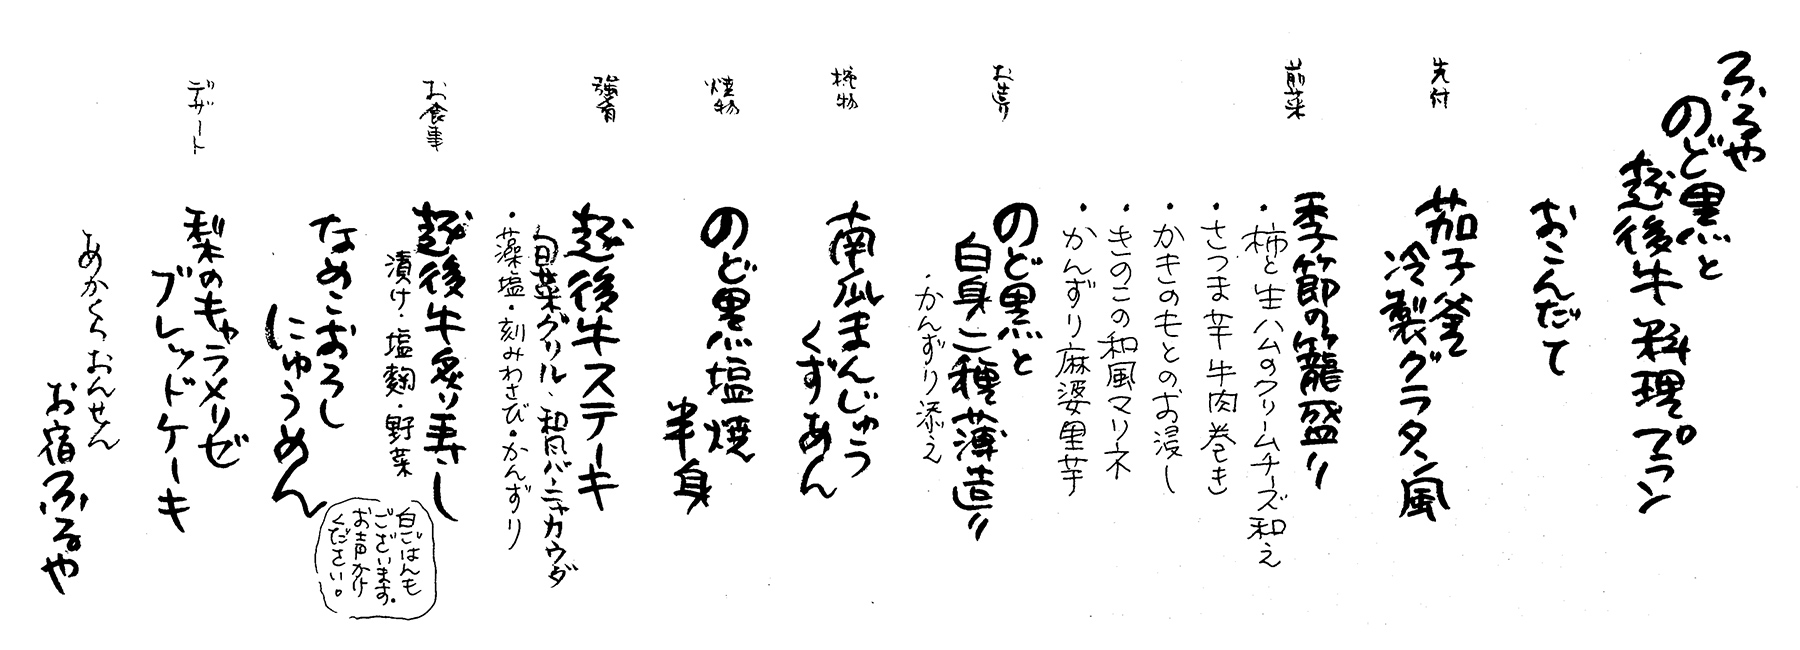 ふるや
のど黒と
越後牛料理プラン
おこんだて
先付
茄子釜
冷製グラタン風
前菜
季節の籠盛り
・柿と生ハムのクリームチーズ和え
・さつま芋牛肉巻き
・かきのもとのお浸し
・きのこの和風マリネ
・かんずり麻婆里芋
お造り
のど黒と
白身二種薄造り
・かんずり添え
椀物
南瓜まんじゅう
くずあん
焼物
のど黒塩焼
半身
強肴
越後牛ステーキ
旬菜グリル、和風バーニャカウダ
・藻塩・刻みわさび・かんずり
お食事
越後牛炙り寿し
漬け・塩麹・野菜
なめこおろし
にゅうめん
白ごはんも
ございます。
お声かけ
ください。
デザート
梨のキャラメリゼ
ブレッドケーキ
あかくらおんせん
お宿ふるや